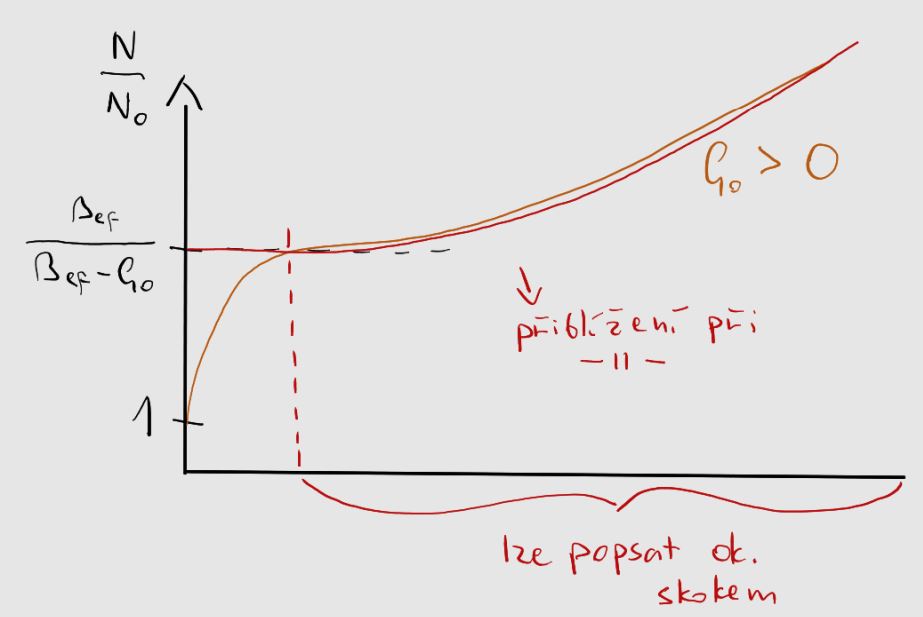 N
N₀
βef
βef - ρ₀
1
ρ₀ > 0
přiblížení při
— || —
lze popsat ok.
skokem